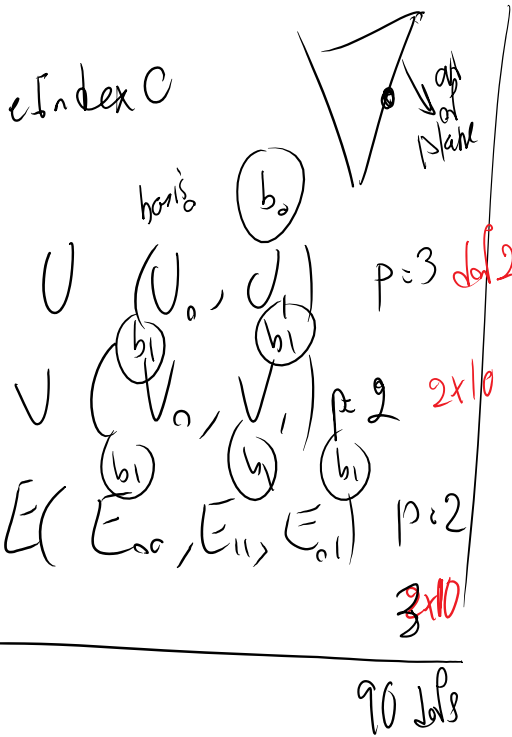 eIndex 0
out
of
plane
basis b₀
U (U₀, U₁) p=3 dof 2
b₁ b₁
V (V₀, V₁) p=2 2x10
b₁ b₁ b₁
E( E₀₀, E₁₁, E₀₁) p=2
3x10
90 dofs